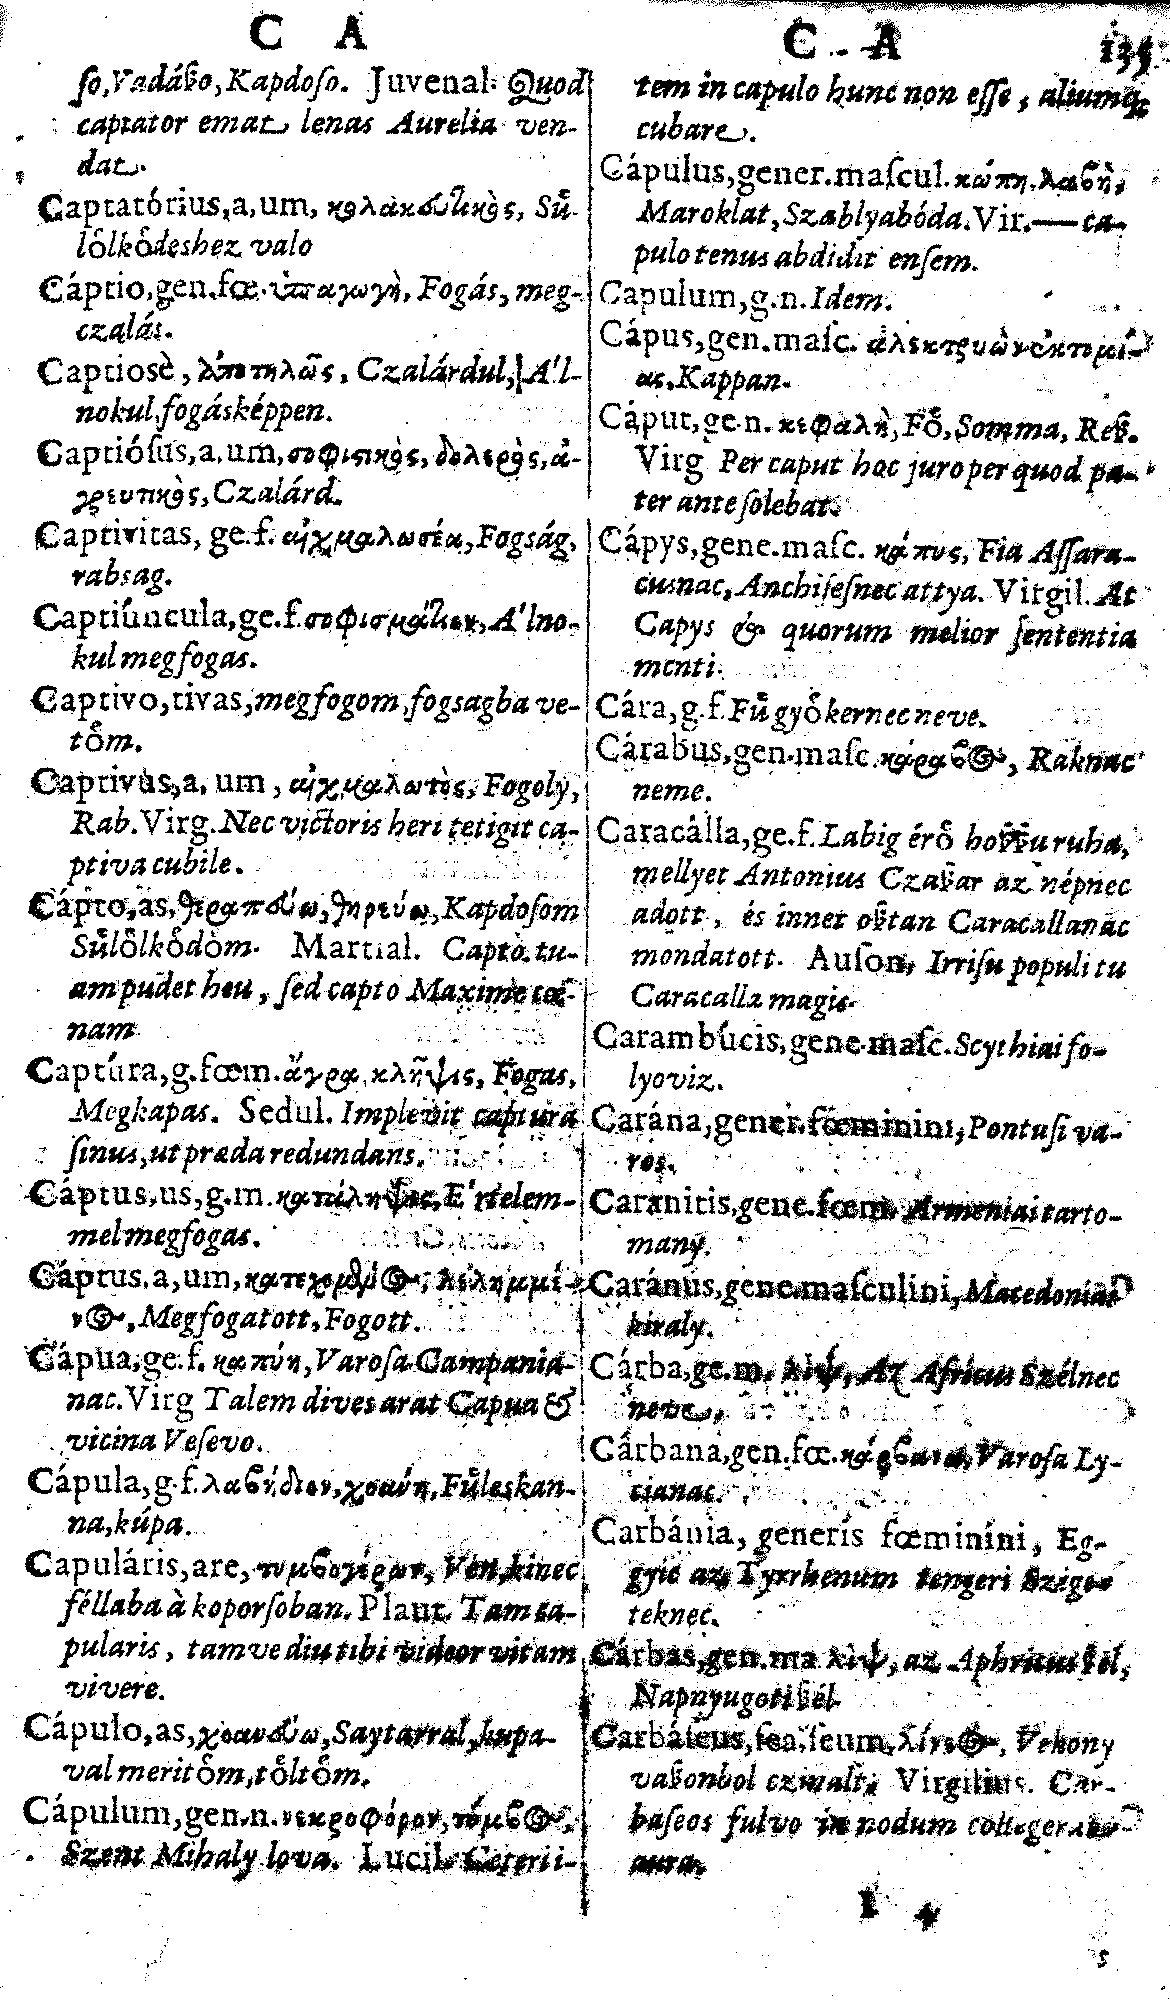 C A
ſo, Vadáẞo, Kapdoſo. Juvenal. Quod
captator emat lenas Aurelia ven-
dat.
Captatórius, a, um, κολακευτικὸς, Sű-
lőlkődeshez valo
Cáptio, gen. fœ. ὑπαγωγὴ, Fogás, meg-
czalás.
Captiosè, ἀπατηλῶς, Czalárdul, A'l-
nokul, fogásképpen.
Captióſus, a, um, σοφιστικὸς, δολερὸς, ἀ-
γρευτικὸς, Czalárd.
Captivitas, ge. f. αἰχμαλωσία, Fogság,
rabsag.
Captiúncula, ge. f. σοφισμάτιον, A'lno-
kul megfogas.
Captivo, tivas, megfogom, fogsagba ve-
tőm.
Captivus, a, um, αἰχμαλωτὸς, Fogoly,
Rab. Virg. Nec victoris heri tetigit ca-
ptiva cubile.
Cápto, as, θεραπεύω, θηρεύω, Kapdoſom
Sűlőlkődöm. Martial. Capto tu-
am pudet heu, ſed capto Maxime cœ-
nam
Captúra, g. fœm. ἄγρα, κλῆψις, Fogas,
Megkapas. Sedul. Implevit captura
ſinus, ut præda redundans.
Cáptus, us, g. m. κατάληψις, E'rtelem-
mel megfogas.
Cáptus, a, um, κατεχομένος, λελημμέ-
νος, Megfogatott, Fogott.
Cápua, ge. f. καπύη, Varoſa Campania-
nac. Virg Talem dives arat Capua &
vicina Veſevo.
Cápula, g. f. λαβίδιον, χοάνη, Fűleskan-
na, kúpa.
Capuláris, are, τυμβογέρων, Vén, kinec
féllaba à koporſoban. Plaut. Tam ca-
pularis, tamve diu tibi videor vitam
vivere.
Cápulo, as, χοανεύω, Saytarral, kupa-
val meritőm, tőltőm.
Cápulum, gen. n. νεκροφόρον, τύμβος,
Szent Mihaly lova. Lucil. Ceteri i-
C A 135
tem in capulo hunc non eſſe, aliumq;
cubare.
Cápulus, gener. maſcul. κώπη, λαβὴ,
Maroklat, Szablyabóda. Vir.—ca-
pulo tenus abdidit enſem.
Capulum, g. n. Idem.
Cápus, gen. maſc. ἀλεκτρυὼν ἐκτομί-
ας, Kappan.
Cáput, ge. n. κεφαλὴ, Fő, Somma, Reẞ.
Virg Per caput hoc juro per quod pa-
ter ante ſolebat.
Cápys, gene. maſc. κάπυς, Fia Aſſara-
cusnac, Anchiſeſnec attya. Virgil. At
Capys & quorum melior ſententia
menti.
Cára, g. f. Fű győkernec neve.
Cárabus, gen. maſc. κάραβος, Raknac
neme.
Caracálla, ge. f. Labig érő hoẞẞu ruha,
mellyet Antonius Czaẞar az népnec
adott, és innet oẞtan Caracallanac
mondatott. Auſon. Irriſu populi tu
Caracalla magis.
Carambúcis, gene. maſc. Scythiai fo-
lyoviz.
Carána, gener. fœminini, Pontuſi va-
ros.
Caranitis, gene. fœm. Armeniai tarto-
many.
Caránus, gene. maſculini, Macedoniai
kiraly.
Cárba, ge. m. λὶψ, Az Africus Szélnec
neve.
Cárbana, gen. fœ. κάρβανα, Varoſa Ly-
cianac.
Carbánia, generis fœminini, Eg-
gyic az Tyrrhenum tengeri Szige-
teknec.
Cárbas, gen. ma λὶψ, az Aphricus ẞél,
Napnyugoti ẞél
Carbáſeus, ſea, ſeum, λίνεος, Vekony
vaẞonbol czinalt, Virgilius. Car-
baſeos fulvo in nodum collegerat
aura.
I 4